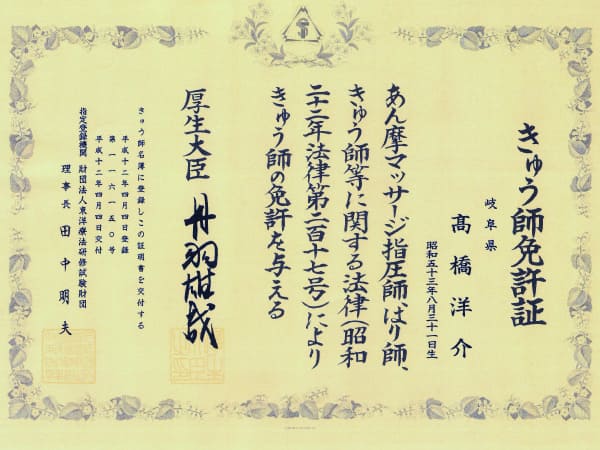 きゅう師免許証
岐阜県
髙橋洋介
昭和五十三年八月三十一日生
あん摩マッサージ指圧師、はり師、
きゅう師等に関する法律(昭和
二十二年法律第二百十七号)により
きゅう師の免許を与える
厚生大臣 丹羽雄哉
きゅう師名簿に登録しこの証明書を交付する
平成十二年四月四日登録
第一一六一五〇号
平成十二年四月四日交付
指定登録機関 財団法人東洋療法研修試験財団
理事長 田中明夫